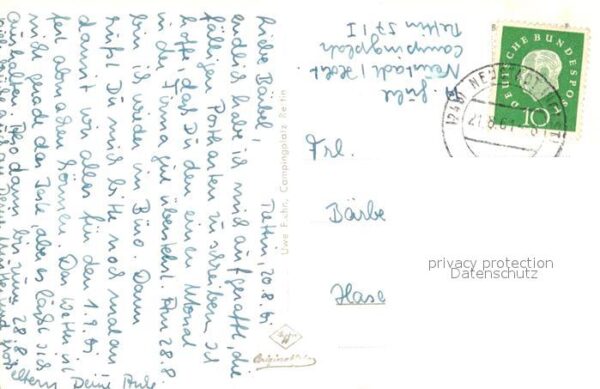 Pettin, 20.8.61
Liebe Bärbel,
endlich habe ich mich aufgerafft, die
fälligen Postkarten zu schreiben. Ich
hoffe, daß Du den einen Monat
in der Firma gut überstehst. Am 28.8.
bin ich wieder im Büro. Dann
mußt Du mich bitte noch mal an
damit wir alles für den 1.9.61
fest abmachen können. Das Wetter ist
nicht gerade das Beste, aber es läßt sich
aushalten. Also dann bis zum 28.8.
eltern Deine
Uwe Fuhr, Campingplatz Rettin
Original
Neustadt / Holst
Campingplatz
Rettin 57 I
DEUTSCHE BUNDESPOST
10
(24b) NEUSTADT
21.8.61
Frl.
Bärbel
Hase
privacy protection
Datenschutz